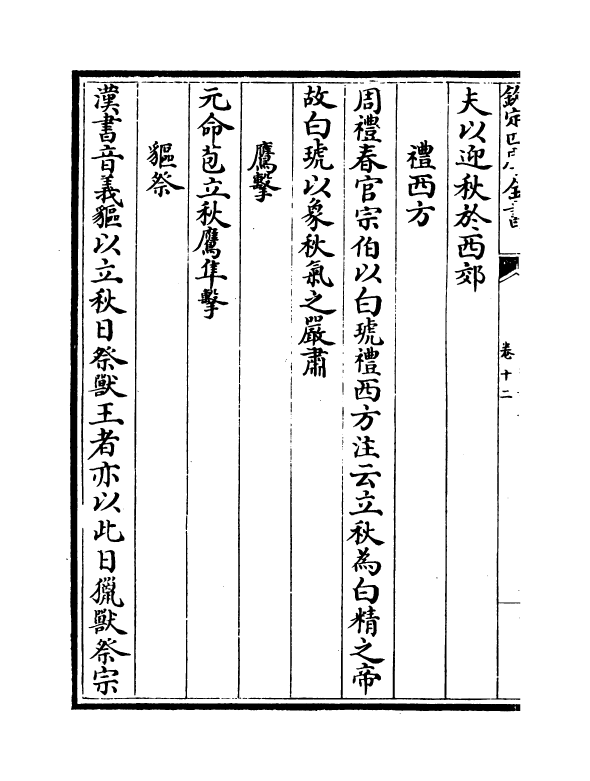 欽定四庫全書
卷十二
夫以迎秋於西郊
禮西方
周禮春官宗伯以白琥禮西方注云立秋為白精之帝
故白琥以象秋氣之嚴肅
鷹擊
元命苞立秋鷹隼擊
貙祭
漢書音義貙以立秋日祭獸王者亦以此日獵獸祭宗